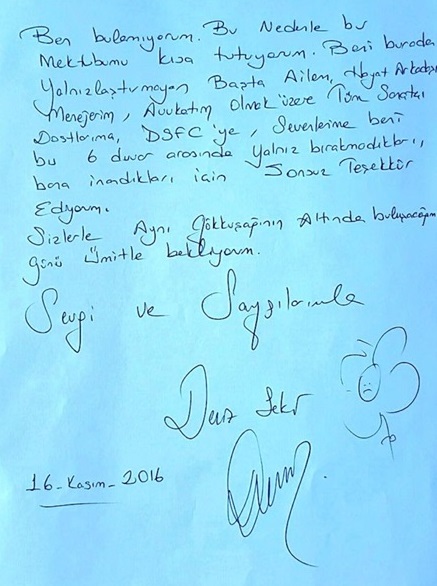 Ben bulamıyorum. Bu Nedenle bu
Mektubumu kısa tutuyorum. Beni burada
Yalnızlaştırmayan Başta Ailem, Hayat Arkadaşı
Menejerim, Avukatım Olmak üzere Tüm Sanatçı
Dostlarıma, DSFC'ye, Sevenlerime beni
bu 6 duvar arasında Yalnız bırakmadıkları,
bana inandıkları için Sonsuz Teşekkür
Ediyorum.
Sizlerle Aynı Gökkuşağının Altında buluşacağım
günü Ümitle bekliyorum.
Sevgi ve Saygılarımla
Deniz Seki
16-Kasım-2016